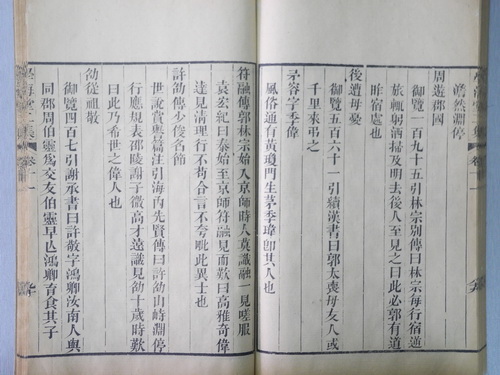 然淵停
周遊郡國
御覽一百九十五引林宗別傳曰林宗每行宿逆
旅輒躬洒掃及明去後人至見之曰此必郭有道
昨宿處也
後遭母憂
御覽五百六十一引續漢書曰郭太喪母友人或
千里來弔之
茅容字季偉
風俗通有黃瓊門生茅季瑋卽其人也
符融傳郭林宗始入京師時人莫識融一見嗟服
袁宏紀曰泰始至京師符融見而歎曰高雅奇偉
達見清理行不苟合言不夸毗此異士也
許劭傳少俊名節
世說賞譽篇注引海內先賢傳曰許劭山峙淵停
行應規表邵陵謝子微高才遠識見劭十歲時歎
曰此乃希世之偉人也
劭從祖敬
御覽四百七引謝承書曰許敬字鴻卿汝南人與
同郡周伯靈為交友伯靈早亡鴻卿育食其子
學海堂二集 卷十一